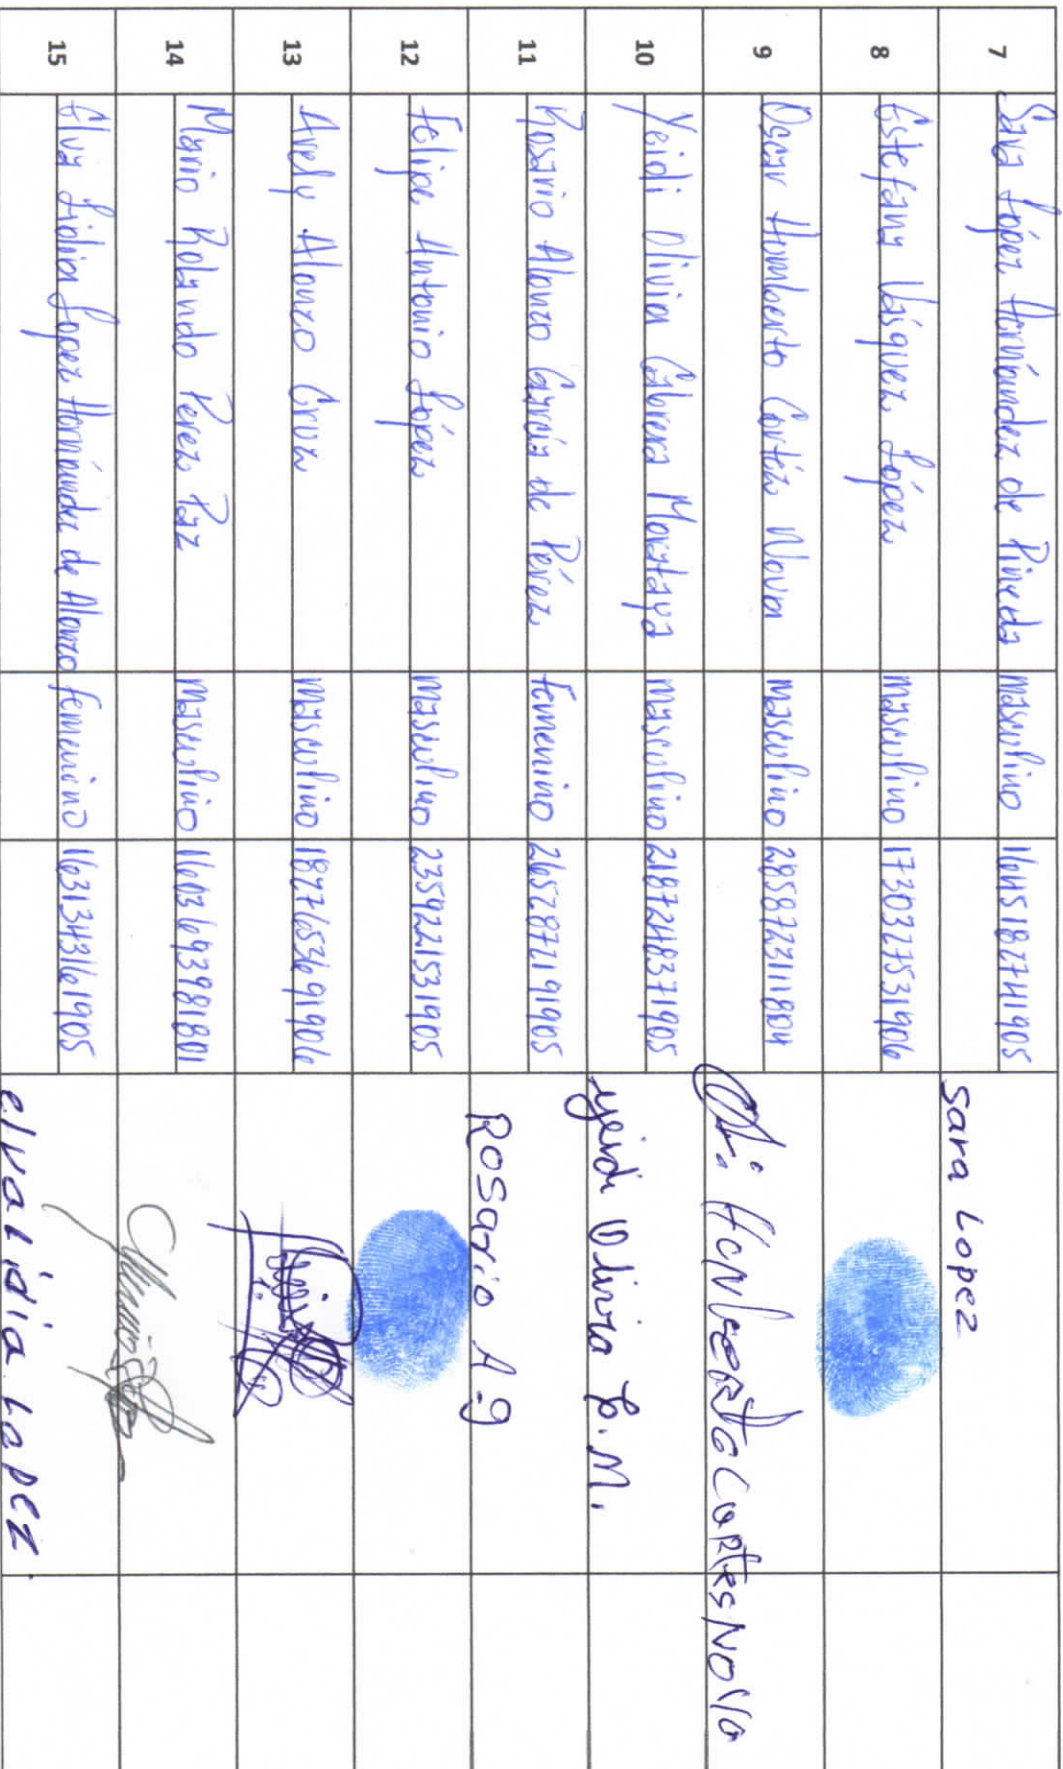 7 Sara López Hernández de Pineda masculino 1645182741905 Sara Lopez
8 Estefana Vásquez López masculino 1730327531906
9 Oscar Humberto Cortéz Nova masculino 2858722311804 Humberto Cortes Nova
10 Yeidi Olivia Cabrera Morataya masculino 2187248371905 yeidi Olivia
11 Rosario Alonzo García de Pérez femenino 2652872191905 Rosario A g
12 Felipe Antonio López masculino 2359221531905
13 Avely Alonzo Cruz masculino 1827653691906
14 Mario Rolando Perez Paz masculino 1603693981801
15 Elva Lidia Lopez Hernández de Alonzo femenino 1631343161905 elva Lidia Lopez.